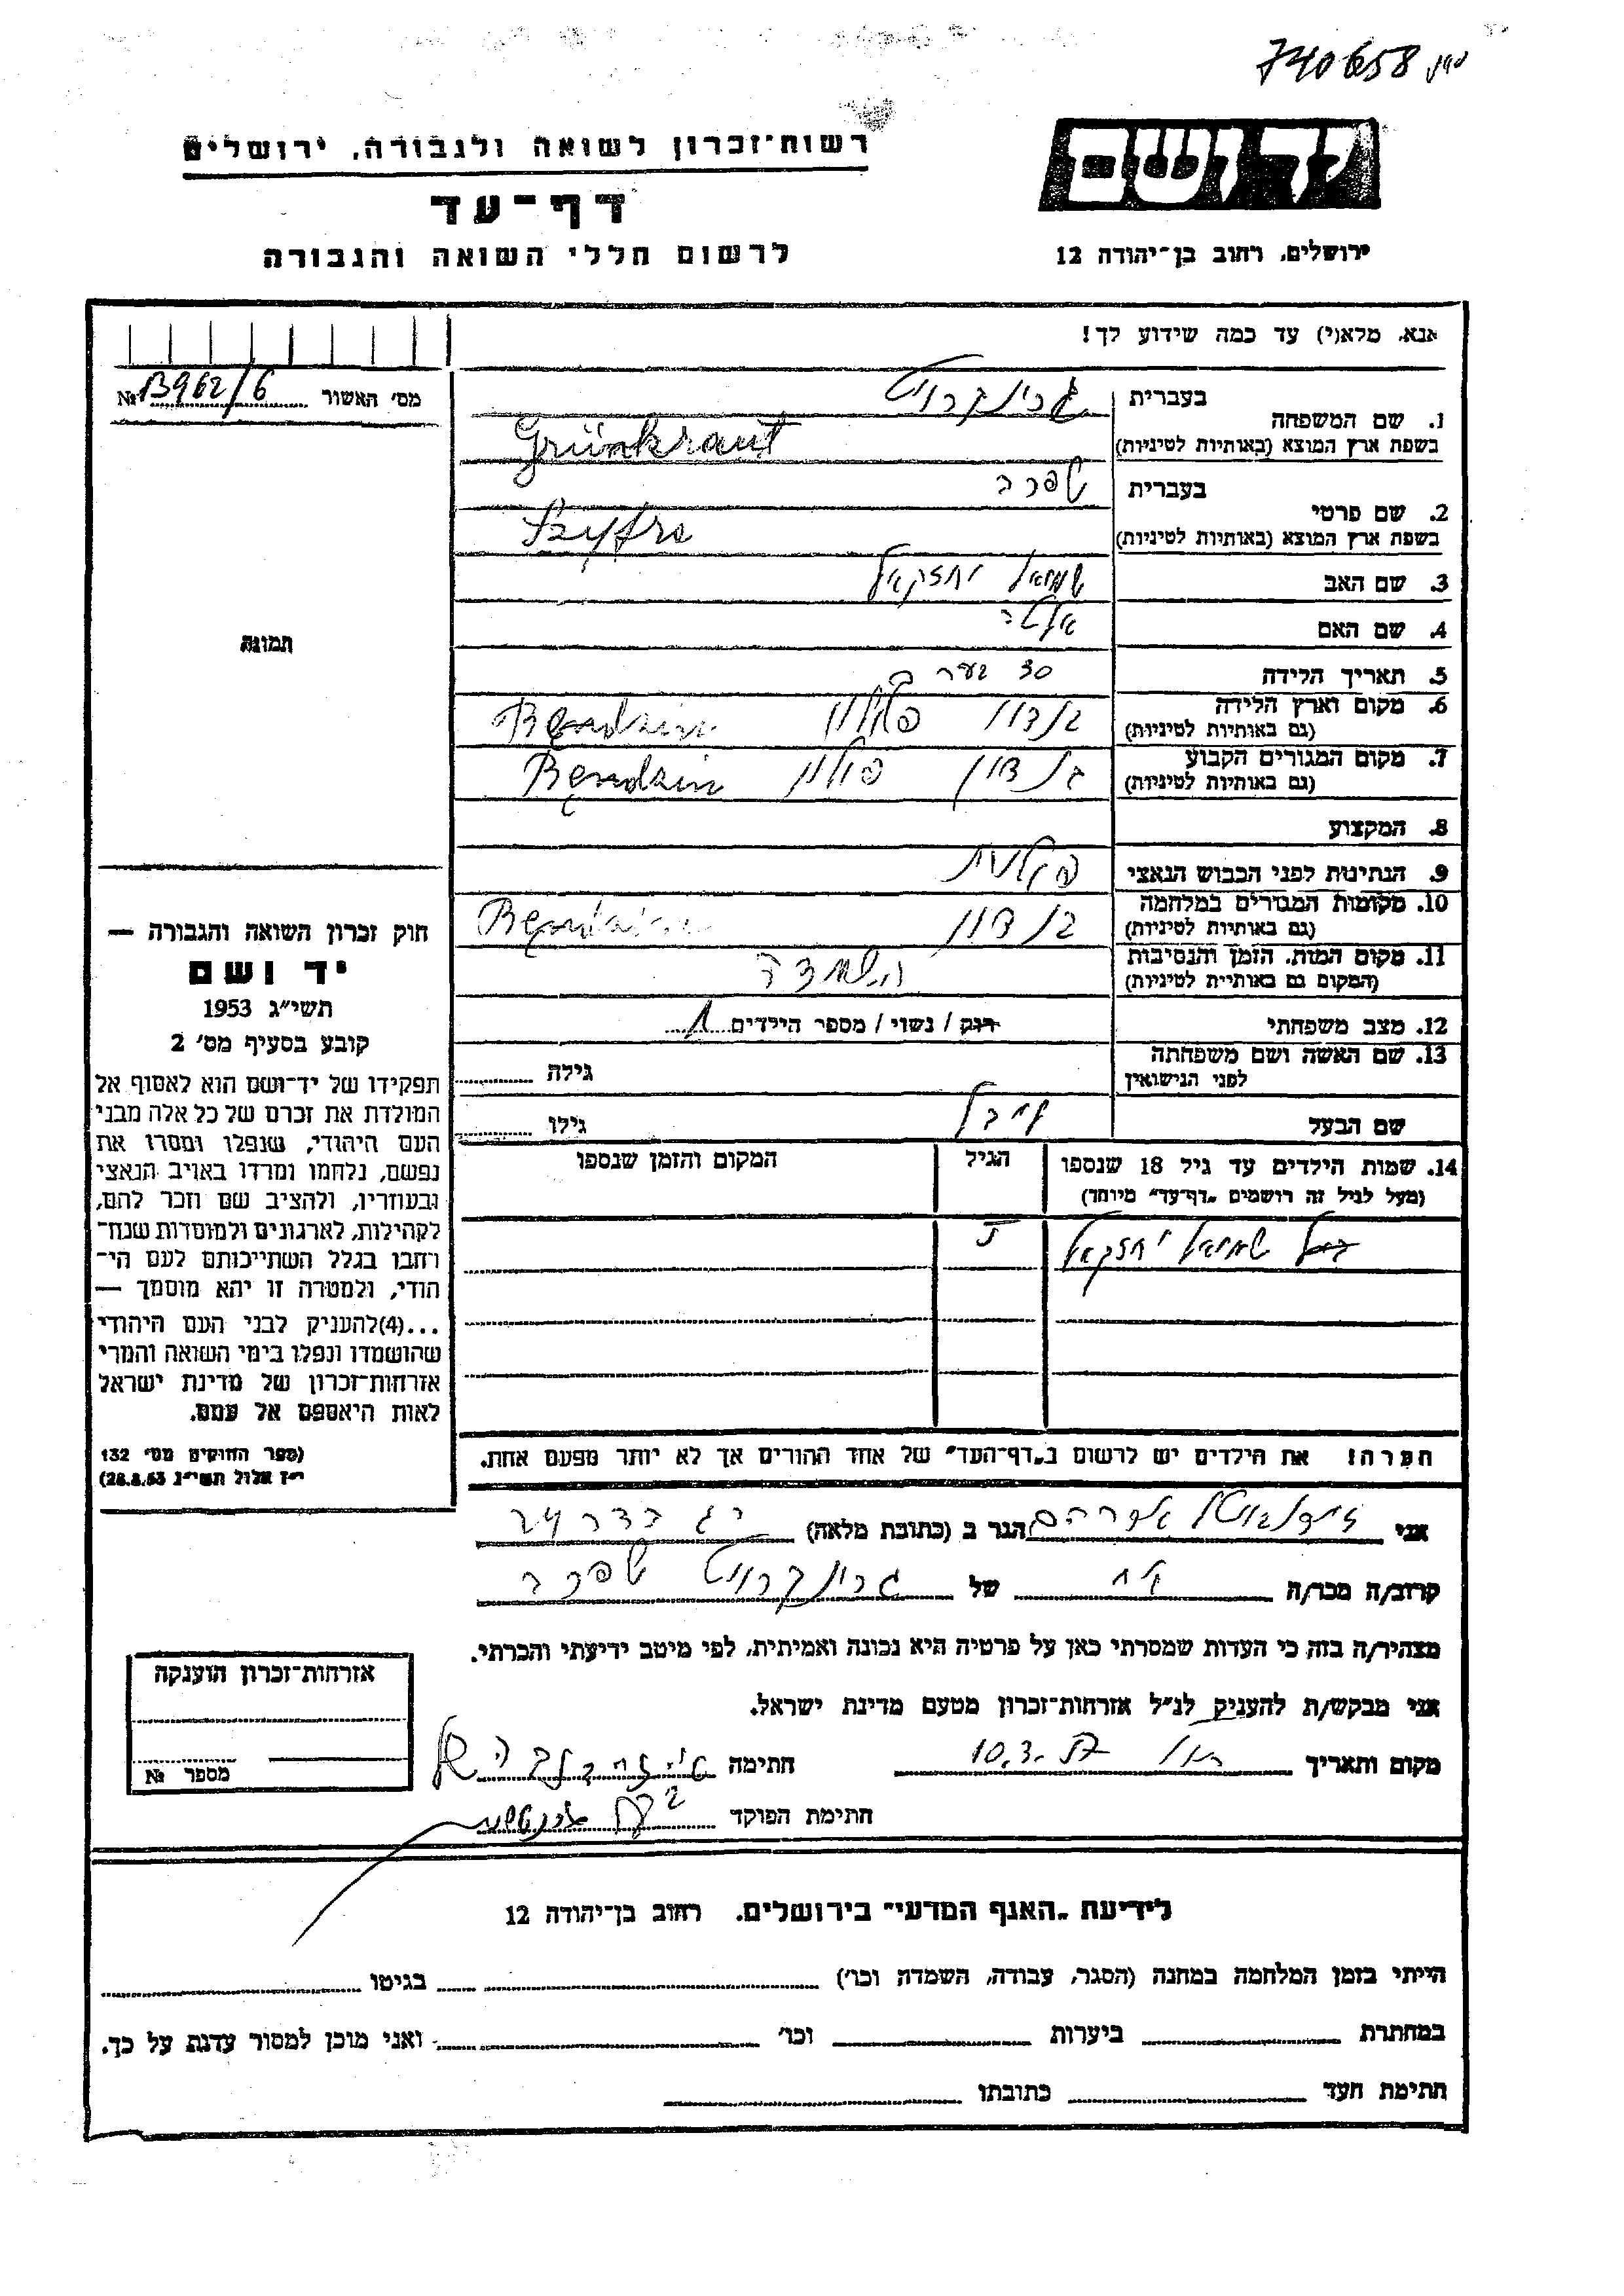 740658
רשות־זכרון לשואה ולגבורה, ירושלים
דף־עד
לרשום חללי השואה והגבורה
יד ושם
ירושלים, רחוב בן־יהודה 12
אנא, מלא(י) עד כמה שידוע לך!
מס׳ האשור № B962/6
בעברית גרינקרויט
1. שם המשפחה
בשפת ארץ המוצא (באותיות לטיניות) Grünkraut
בעברית שפרה
2. שם פרטי
בשפת ארץ המוצא (באותיות לטיניות) Szyfra
3. שם האב שמואל יחזקאל
4. שם האם
5. תאריך הלידה 30
6. מקום וארץ הלידה בנדזין פולין Bendzin
(גם באותיות לטיניות)
7. מקום המגורים הקבוע בנדזין פולין Bendzin
(גם באותיות לטיניות)
8. המקצוע
9. הנתינות לפני הכבוש הנאצי פולנית
10. מקומות המגורים במלחמה בנדזין Bendzin
(גם באותיות לטיניות)
11. מקום המות, הזמן והנסיבות השמדה
(המקום גם באותיות לטיניות)
12. מצב משפחתי רווק / נשוי / מספר הילדים 1
13. שם האשה ושם משפחתה גילה
לפני הנישואין
שם הבעל גילו
14. שמות הילדים עד גיל 18 שנספו הגיל המקום והזמן שנספו
(מעל לגיל זה רושמים „דף־עד״ מיוחד)
שמואל יחזקאל
תמונה
חוק זכרון השואה והגבורה —
יד ושם
תשי״ג 1953
קובע בסעיף מס׳ 2
תפקידו של יד־ושם הוא לאסוף אל
המולדת את זכרם של כל אלה מבני
העם היהודי, שנפלו ומסרו את
נפשם, נלחמו ומרדו באויב הנאצי
ובעוזריו, ולהציב שם וזכר להם,
לקהילות, לארגונים ולמוסדות שנח־
רחבו בגלל השתייכותם לעם הי־
הודי, ולמטרה זו יהא מוסמך —
...(4)להעניק לבני העם היהודי
שהושמדו ונפלו בימי השואה והמרי
אזרחות־זכרון של מדינת ישראל
לאות היאספם אל עמם.
(ספר החוקים מס׳ 132
י״ז אלול תשי״ג 28.8.53)
הערה! את הילדים יש לרשום ב„דף־העד״ של אחד ההורים אך לא יותר מפעם אחת.
אני הגר ב (כתובת מלאה)
קרוב/ה מכר/ה של גרינקרויט שפרה
מצהיר/ה בזה כי העדות שמסרתי כאן על פרטיה היא נכונה ואמיתית, לפי מיטב ידיעתי והכרתי.
אני מבקש/ת להעניק לנ״ל אזרחות־זכרון מטעם מדינת ישראל.
מקום ותאריך 10.3. חתימה
חתימת הפוקד
אזרחות־זכרון הוענקה
מספר №
לידיעת „האגף המדעי״ בירושלים, רחוב בן־יהודה 12
הייתי בזמן המלחמה במחנה (הסגר, עבודה, השמדה וכו׳) בגיטו
במחתרת ביערות וכו׳ ואני מוכן למסור עדות על כך.
חתימת העד כתובתו